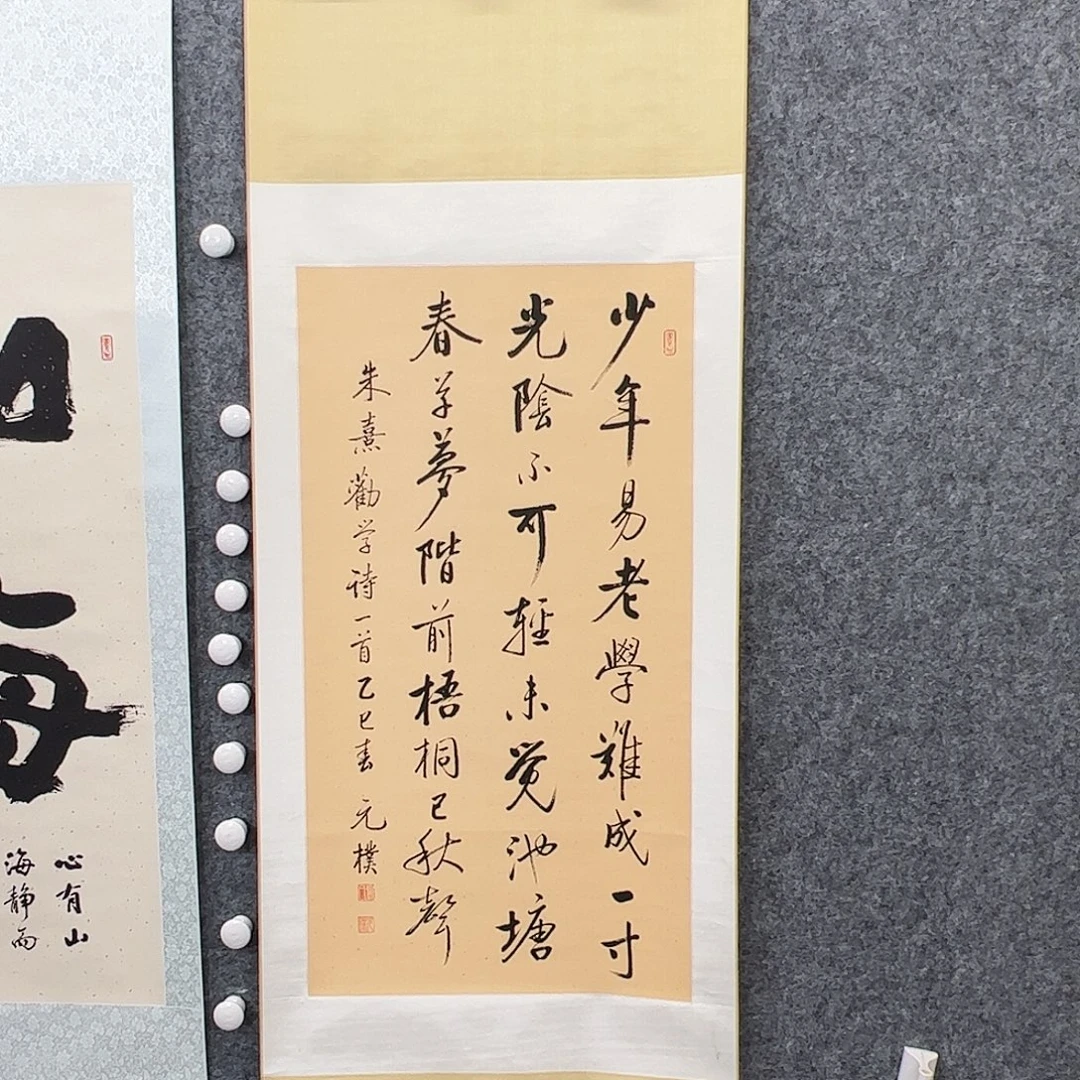 少年易老學難成一寸
光陰不可輕未觉池塘
春草夢階前梧桐已秋聲
朱熹勸学诗一首乙巳春 元樸
心有山
海静而